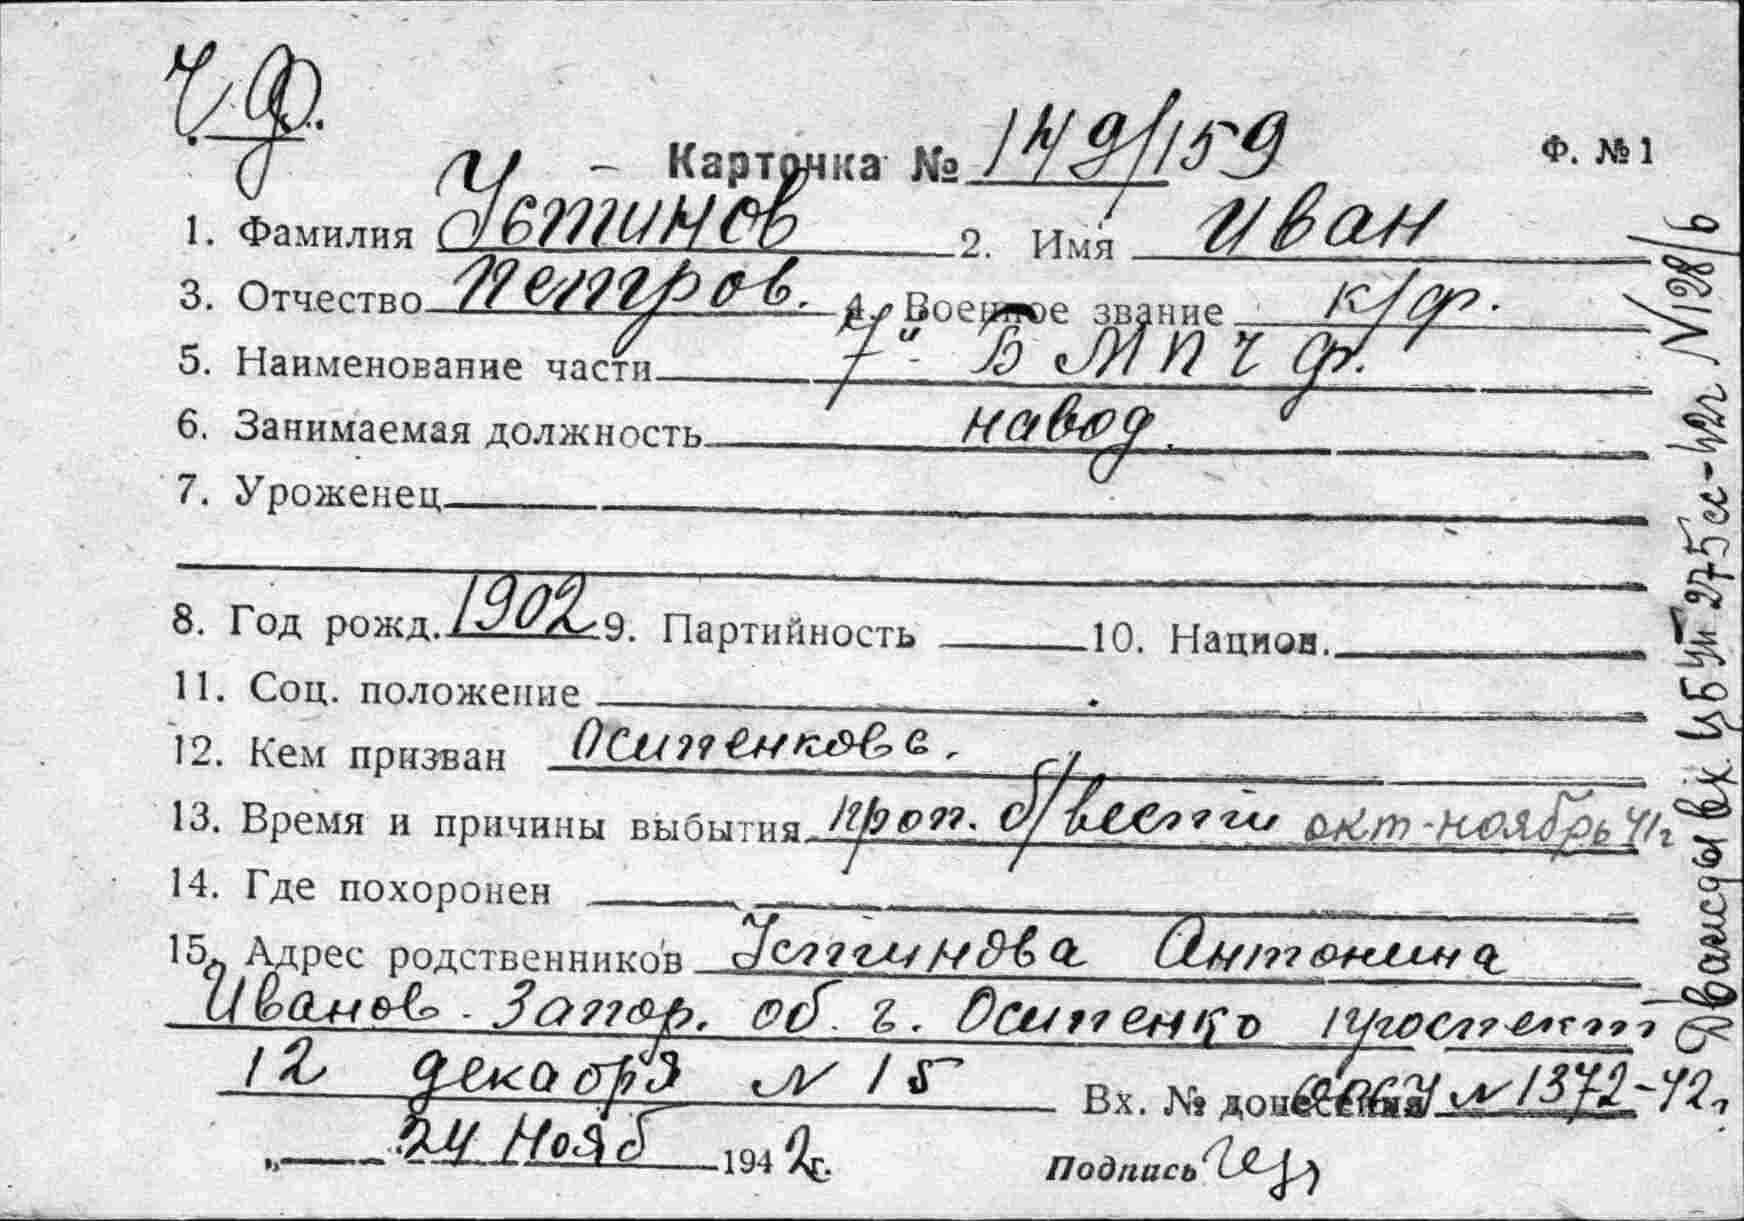 Ч.Ф.
Карточка № 149/159 Ф. № 1
1. Фамилия Устинов 2. Имя Иван
3. Отчество Петров. 4. Военное звание к/ф.
5. Наименование части 7й БМПЧФ.
6. Занимаемая должность навод.
7. Уроженец
8. Год рожд. 1902 9. Партийность 10. Национ.
11. Соц. положение
12. Кем призван Осипенковс.
13. Время и причины выбытия проп. б/вести окт-ноябрь 41г
14. Где похоронен
15. Адрес родственников Устинова Антонина
Иванов. Запор. об. г. Осипенко проспект
12 декабря N 15
Вх. № донесения N 1372-42г
„ 24 нояб 1942г.
Подпись
Дважды вх. ЦБУП 275сс-42г N128/6